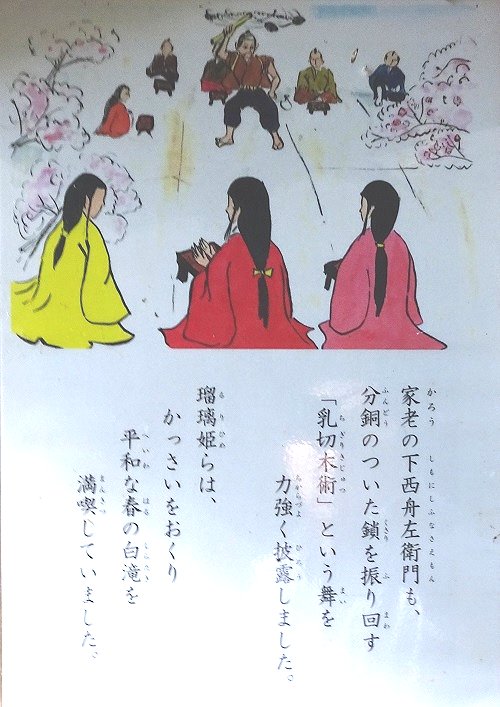 家老の下西舟左衛門も、
分銅のついた鎖を振り回す
「乳切木術」という舞を
力強く披露しました。
瑠璃姫らは、
かっさいをおくり
平和な春の白滝を
満喫していました。